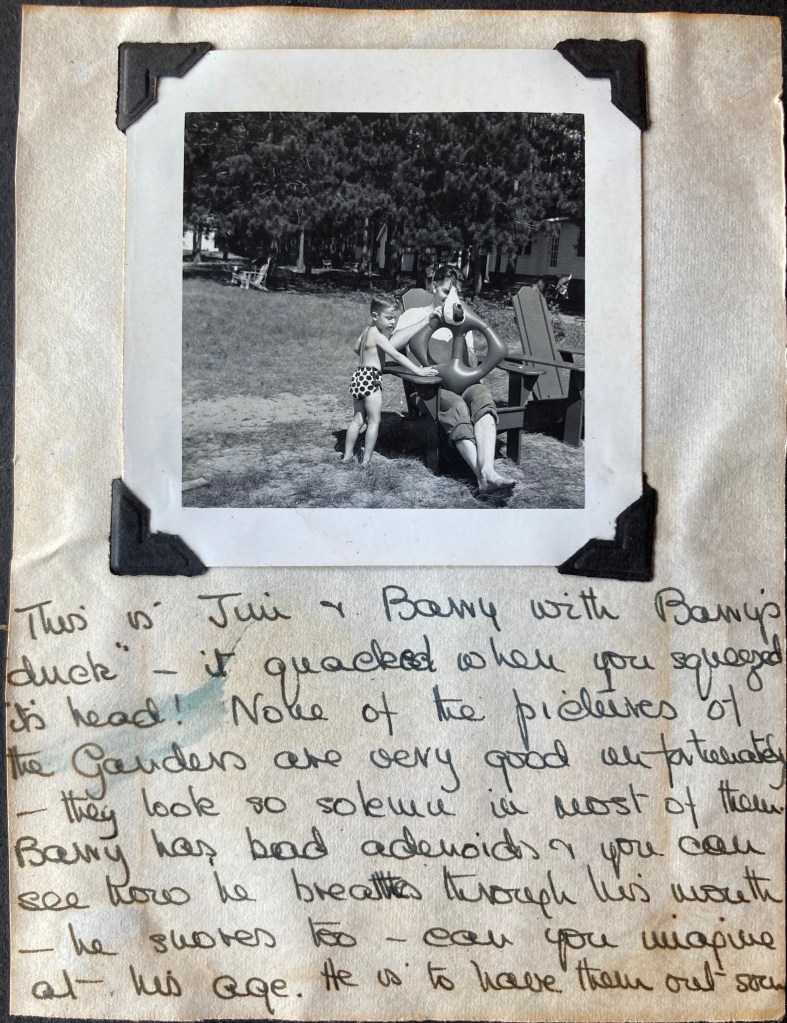 This is Jim & Barry with Barry's
duck" - it quacked when you squeezed
it's head! None of the pictures of
the Ganders are very good unfortunately
- they look so solemn in most of them.
Barry has bad adenoids & you can
see how he breathes through his mouth
- he snores too - can you imagine
at his age. He is to have them out soon